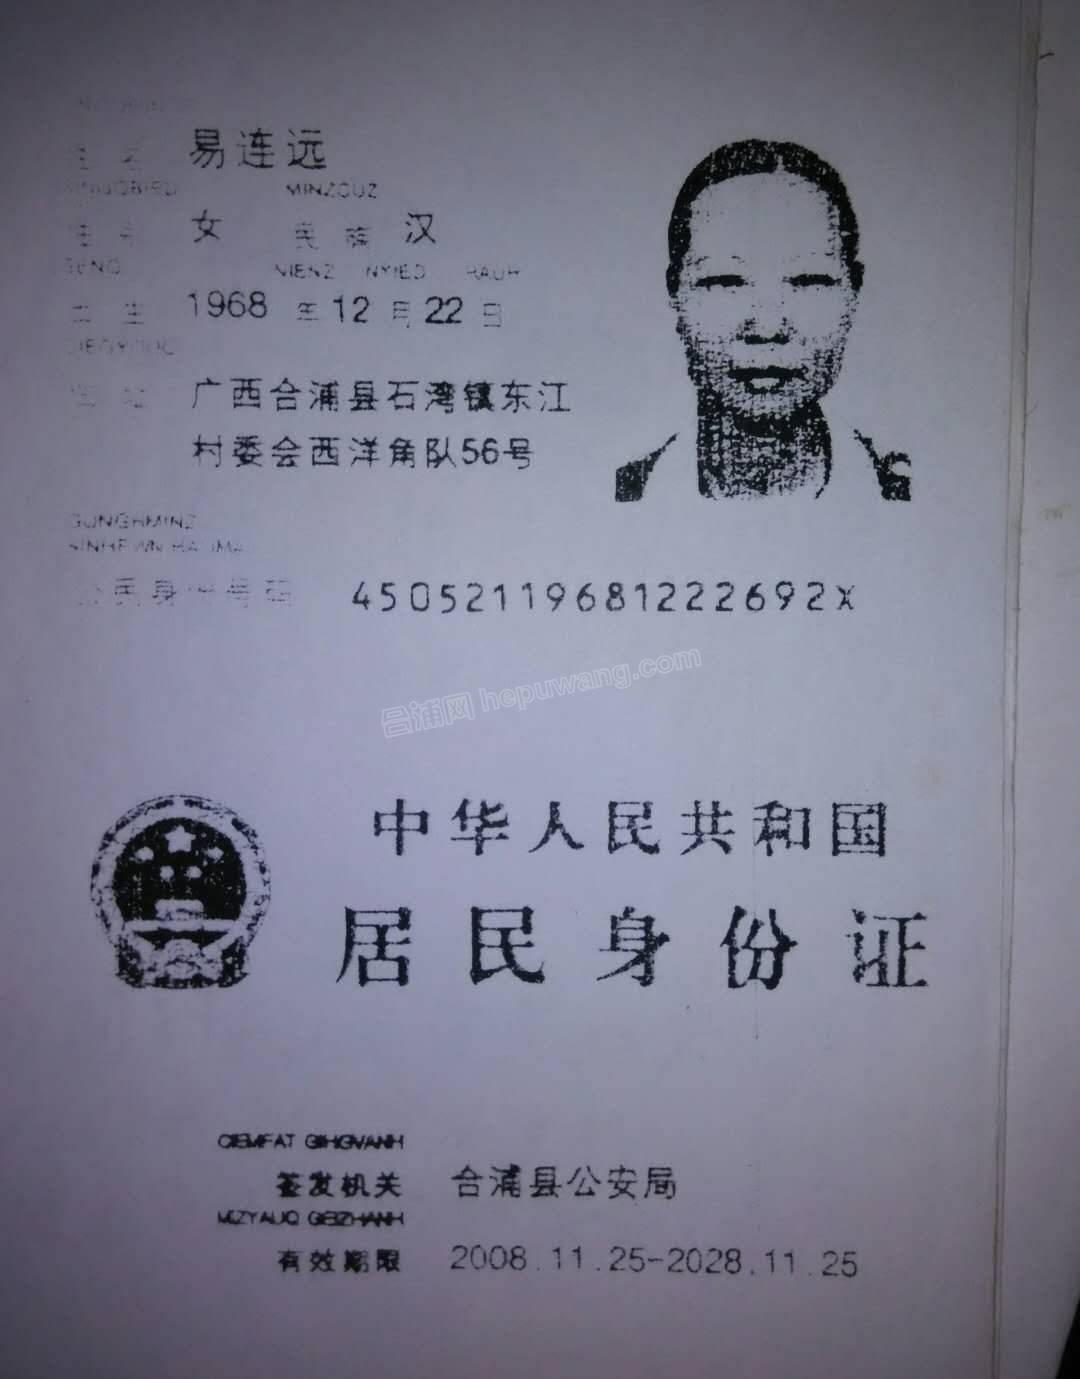 姓名 易连远
MINZCUZ
女 民族 汉
NIENZ NYIED RAUH
出生 1968 年 12 月 22 日
住址 广西合浦县石湾镇东江
村委会西洋角队56号
GUNGHMINZ
公民身份号码 45052119681222692X
合浦网 hepuwang.com
中华人民共和国
居民身份证
签发机关 合浦县公安局
有效期限 2008.11.25-2028.11.25